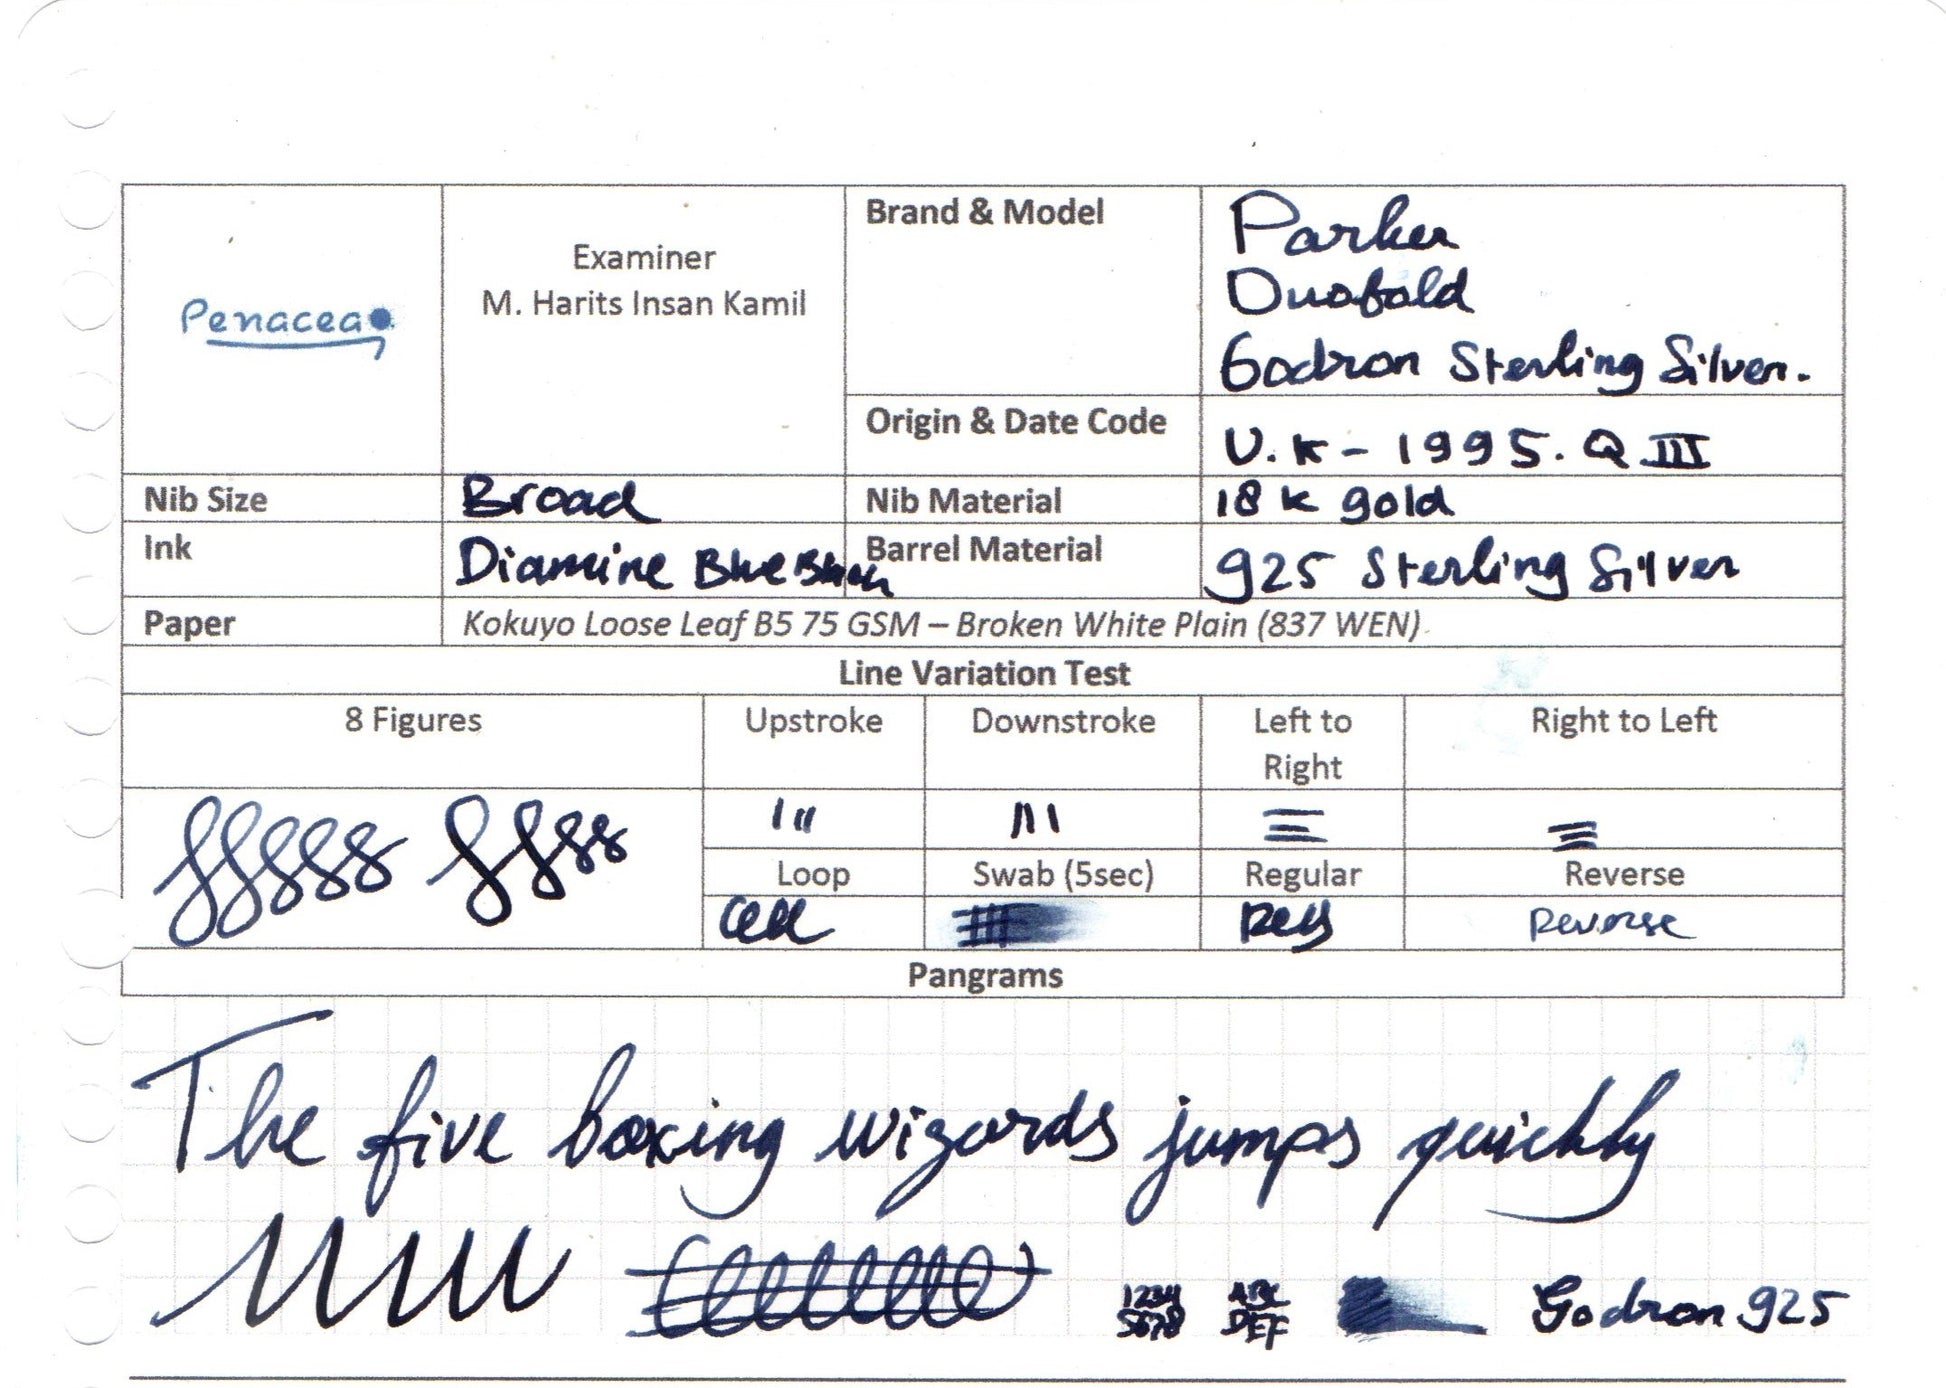 Penacea
Examiner
M. Harits Insan Kamil
Brand & Model
Parker
Duofold
Godron Sterling Silver.
Origin & Date Code
U.K - 1995. Q III
Nib Size
Broad
Nib Material
18 K gold
Ink
Diamine Blue Black
Barrel Material
925 Sterling Silver
Paper
Kokuyo Loose Leaf B5 75 GSM – Broken White Plain (837 WEN)
Line Variation Test
8 Figures
Upstroke
Downstroke
Left to
Right
Right to Left
Loop
Swab (5sec)
Regular
Reverse
Reg
Reverse
Pangrams
The five boxing wizards jumps quickly
1234
5678
ABC
DEF
Godron 925